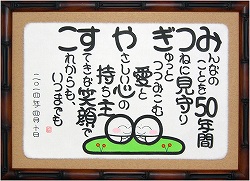 みんなの
ことを50年間
つねに見守り
ぎゅっと
つつみこむ
愛と
やさしい心の
持ち主
すてきな笑顔で
これからも、
いつまでも
二〇一四年四月十日